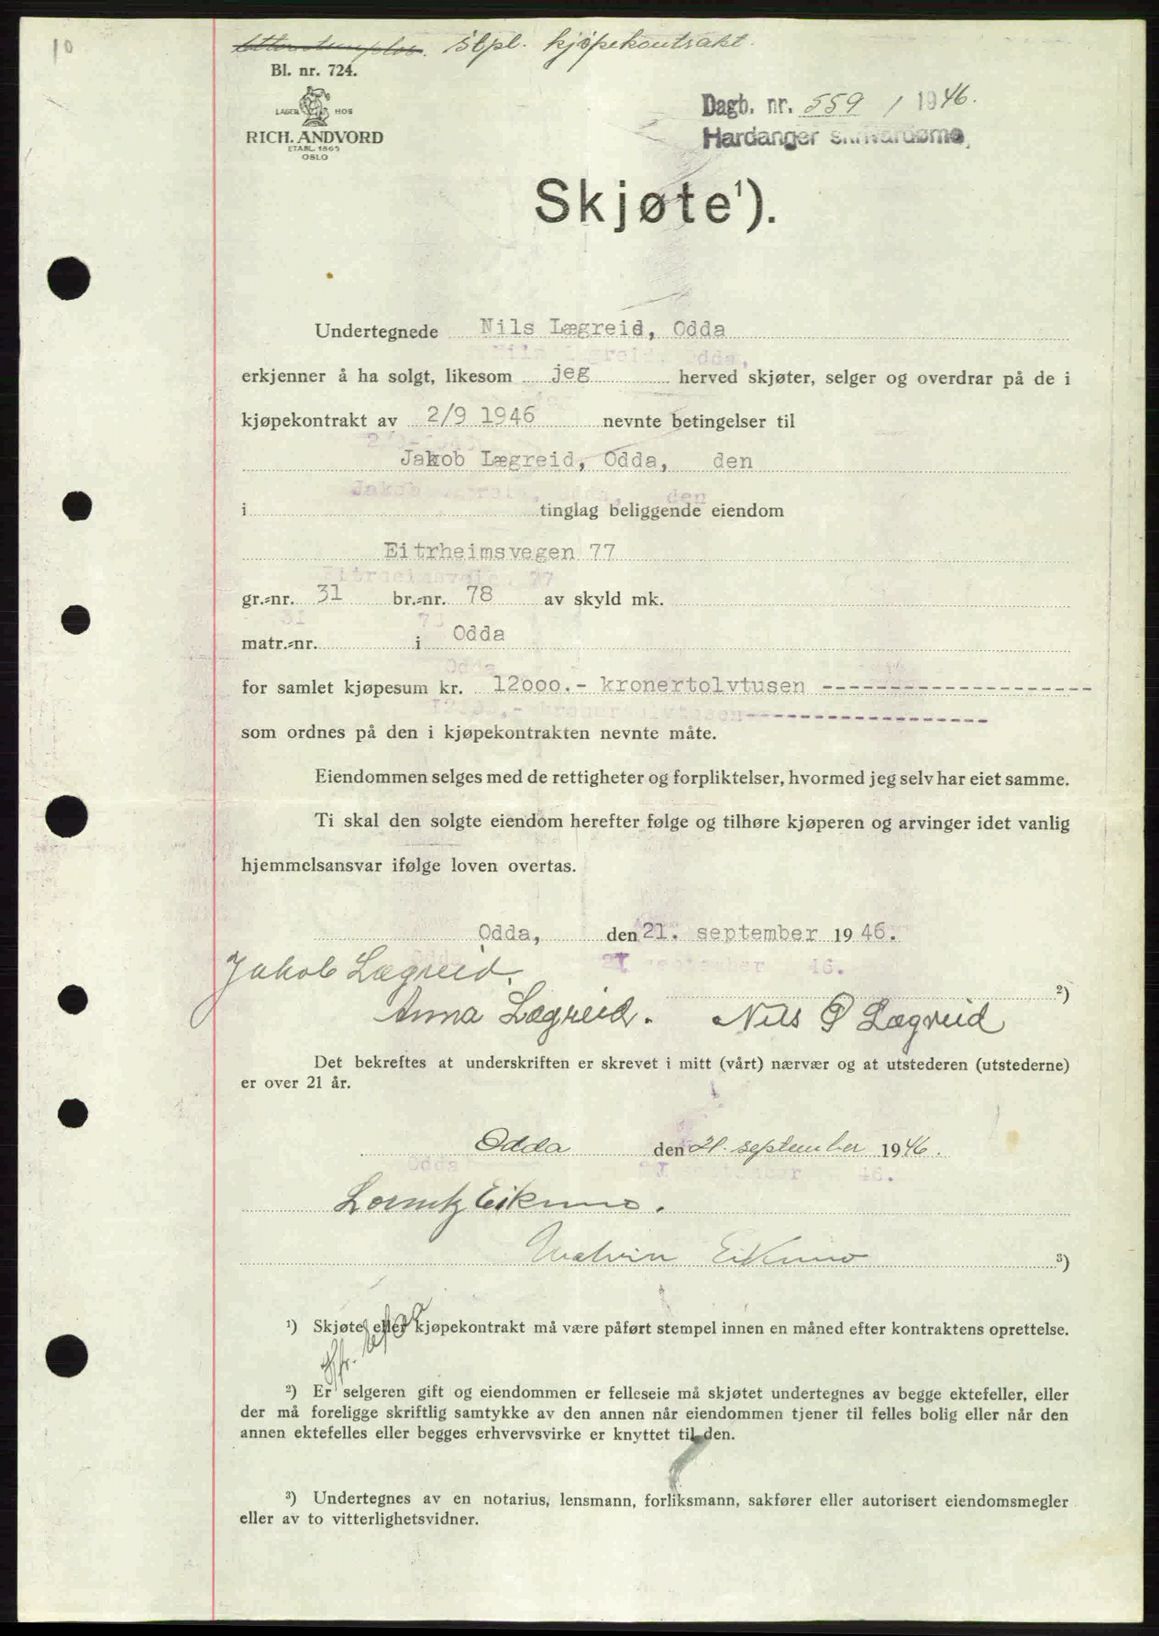 10
Stpl. kjøpekontrakt.
Bl. nr. 724.
LAGER HOS
RICH. ANDVORD
ETABL. 1865
OSLO
Dagb. nr. 559 / 1946.
Hardanger skrivardøme,
Skjøte¹).
Undertegnede Nils Lægreid, Odda
erkjenner å ha solgt, likesom jeg herved skjøter, selger og overdrar på de i
kjøpekontrakt av 2/9 1946 nevnte betingelser til
Jakob Lægreid, Odda, den
i tinglag beliggende eiendom
Eitrheimsvegen 77
gr.-nr. 31 br.-nr. 78 av skyld mk.
matr.-nr. i Odda
for samlet kjøpesum kr. 12000.- kronertolvtusen --------------------
som ordnes på den i kjøpekontrakten nevnte måte.
Eiendommen selges med de rettigheter og forpliktelser, hvormed jeg selv har eiet samme.
Ti skal den solgte eiendom herefter følge og tilhøre kjøperen og arvinger idet vanlig
hjemmelsansvar ifølge loven overtas.
Odda, den 21. september 1946.
Jakob Lægreid. ²)
Anna Lægreid. Nils P Lægreid
Det bekreftes at underskriften er skrevet i mitt (vårt) nærvær og at utstederen (utstederne)
er over 21 år.
Odda den 21. september 1946.
Eikumo.
Eikumo ³)
¹) Skjøte eller kjøpekontrakt må være påført stempel innen en måned efter kontraktens oprettelse.
²) Er selgeren gift og eiendommen er felleseie må skjøtet undertegnes av begge ektefeller, eller
der må foreligge skriftlig samtykke av den annen når eiendommen tjener til felles bolig eller når den
annen ektefelles eller begges erhvervsvirke er knyttet til den.
³) Undertegnes av en notarius, lensmann, forliksmann, sakfører eller autorisert eiendomsmegler
eller av to vitterlighetsvidner.